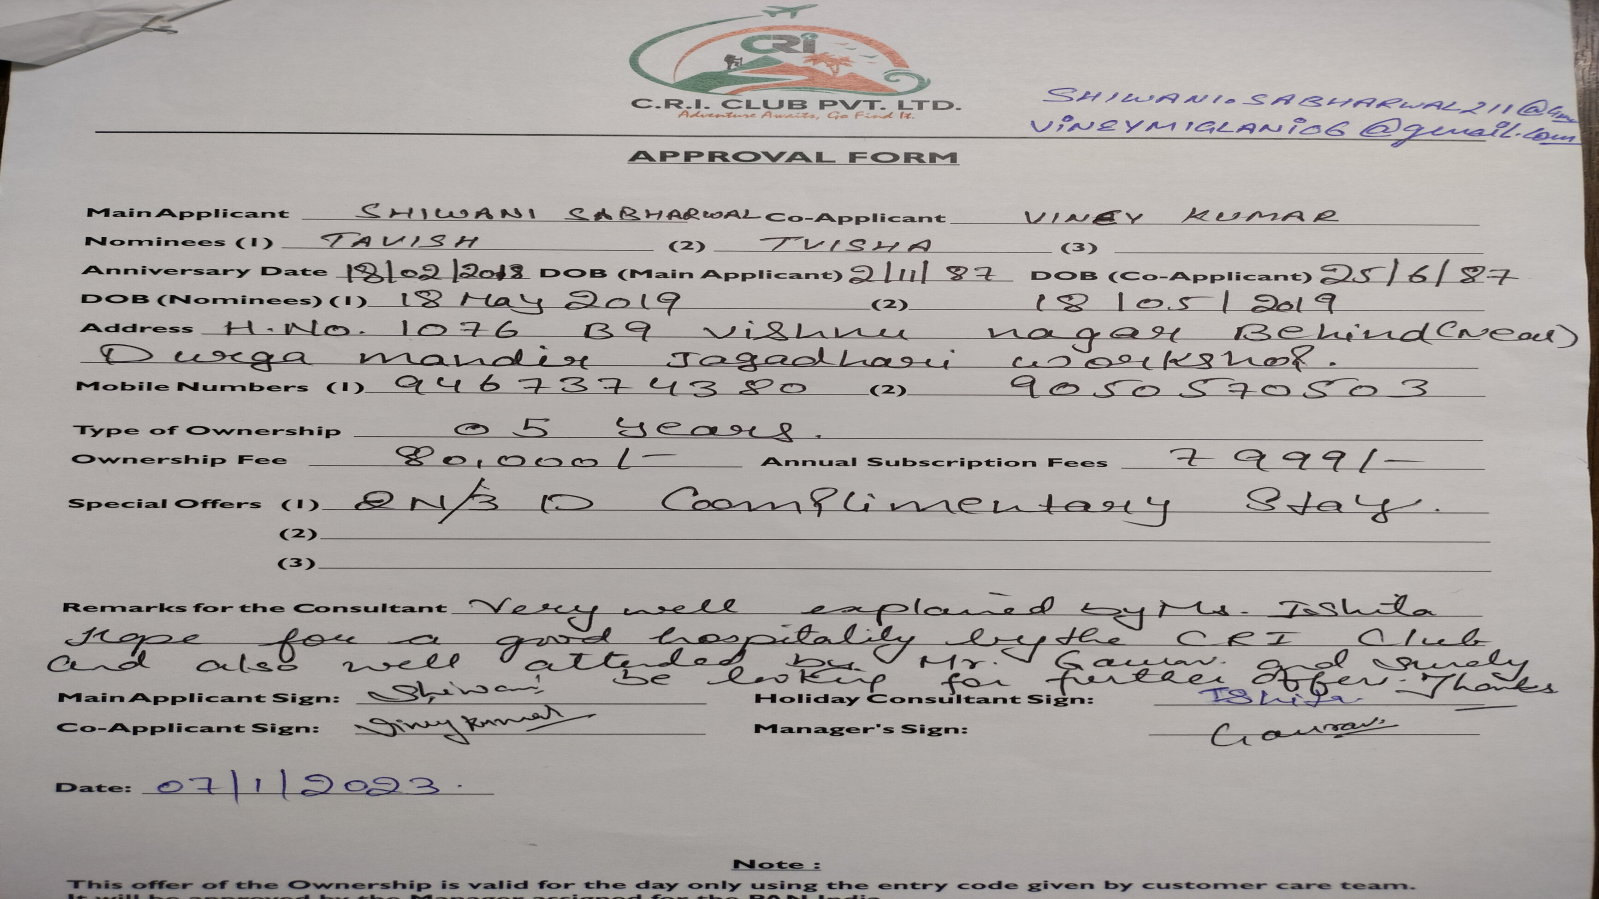 CRi
C.R.I. CLUB PVT. LTD.
Adventure Awaits, Go Find It.
SHIWANI.SABHARWAL211@
VINEYMIGLANI06@gmail.com
APPROVAL FORM
Main Applicant SHIWANI SABHARWAL Co-Applicant VINEY KUMAR
Nominees (1) TAVISH (2) TVISHA (3)
Anniversary Date 18/02/2018 DOB (Main Applicant) 2/11/87 DOB (Co-Applicant) 25/6/87
DOB (Nominees) (1) 18 May 2019 (2) 18/05/2019
Address H.No. 1076 B9 Vishnu nagar Behind (Near)
Durga mandir Jagadhari workshop.
Mobile Numbers (1) 9467374380 (2) 9050570503
Type of Ownership 05 years.
Ownership Fee 80,000/- Annual Subscription Fees 7999/-
Special Offers (1) 2N/3D Coomplimentary Stay.
(2)
(3)
Remarks for the Consultant Very well explained by Ms. Ishita
Hope for a good hospitality by the CRI Club
and also well attended by Mr. Gaurav. and surely
be looking for further offer. Thanks
Main Applicant Sign: Shiwani Holiday Consultant Sign: IShita
Co-Applicant Sign: Viney kumar Manager's Sign: Gaurav
Date: 07/1/2023.
Note :
This offer of the Ownership is valid for the day only using the entry code given by customer care team.
It will be approved by the Manager assigned for the PAN India